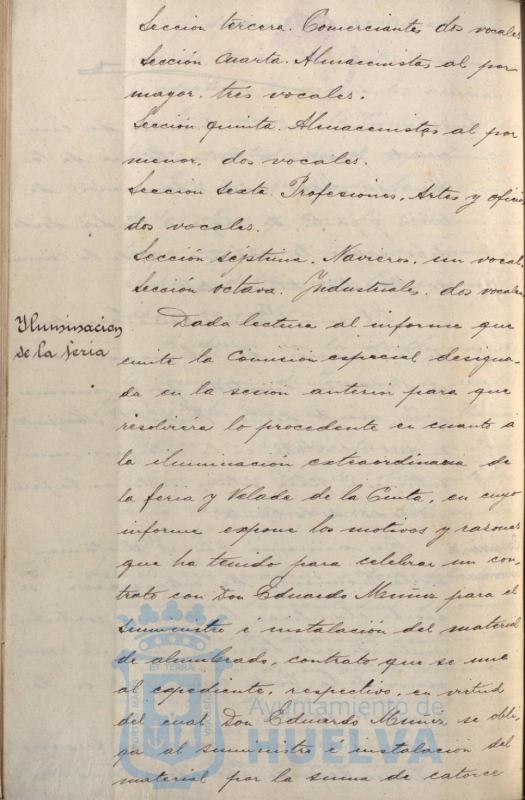 Sección tercera. Comerciantes dos vocales
Sección Cuarta. Almacenistas al por
mayor. tres vocales.
Sección quinta. Almacenistas al por
menor, dos vocales.
Sección sexta. Profesiones, Artes y oficios
dos vocales.
Sección séptima. Navieros. un vocal.
Sección octava. Industriales. dos vocales
Yluminacion
de la feria
Dada lectura al informe que
emite la Comisión especial designa-
da en la sesión anterior para que
resolviera lo procedente en cuanto á
la iluminación extraordinaria de
la feria y Velada de la Cinta, en cuyo
informe expone los motivos y razones
que ha tenido para celebrar un con-
trato con Don Eduardo Muñoz para el
suministro é instalación del material
de alumbrado, contrato que se une
al expediente, respectivo, en virtud
del cual Don Eduardo Muñoz se obli-
ga al suministro é instalación del
material por la suma de catorce
Ayuntamiento de
HUELVA